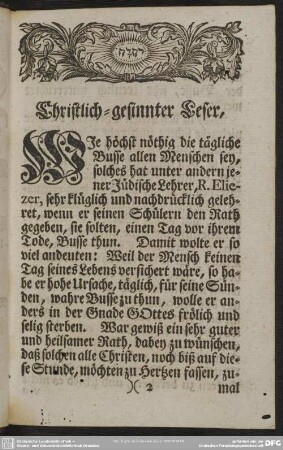 Christlich-gesinnter Leser,
WJe höchst nöthig die tägliche
Busse allen Menschen sey,
solches hat unter andern je-
ner Jüdische Lehrer, R. Elie-
zer, sehr klüglich und nachdrücklich geleh-
ret, wenn er seinen Schülern den Rath
gegeben, sie solten, einen Tag vor ihrem
Tode, Busse thun. Damit wolte er so
viel andeuten: Weil der Mensch keinen
Tag seines Lebens versichert wäre, so ha-
be er hohe Ursache, täglich, für seine Sün-
den, wahre Busse zu thun, wolle er an-
ders in der Gnade GOttes frölich und
selig sterben. War gewiß ein sehr guter
und heilsamer Rath, dabey zu wünschen,
daß solchen alle Christen, noch biß auf die-
se Stunde, möchten zu Hertzen fassen, zu-
)( 2 mal